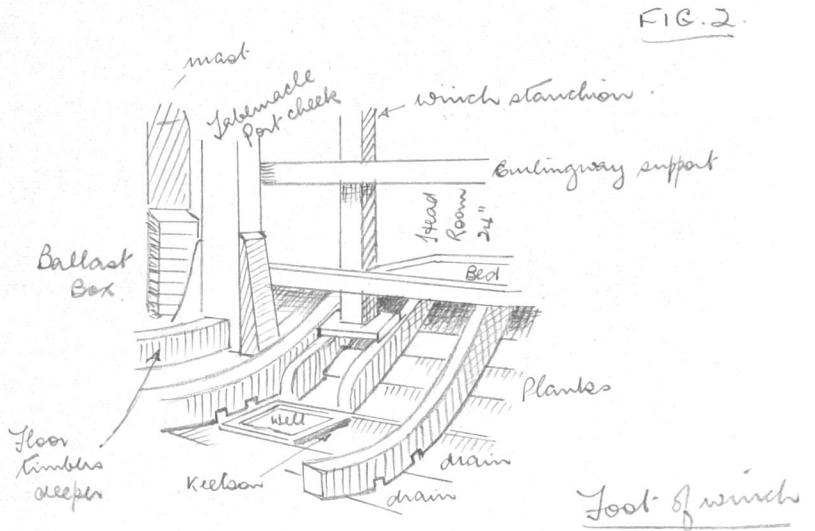 FIG. 2.
mast
Tabernacle
Port cheek
winch stanchion.
Gurlingway support
Head
Room
24"
Ballast
Box
Bed
Planks
Well
Floor
timbers
deeper
Keelson
drain
drain
Foot of winch